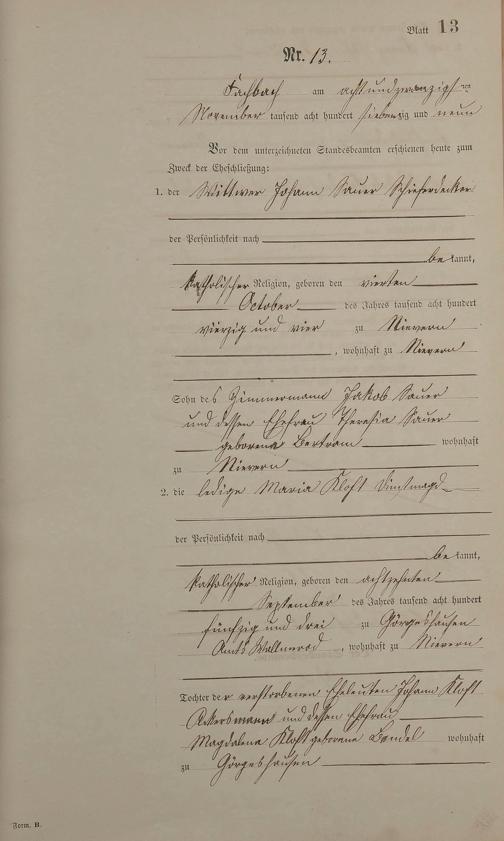 Blatt 13
Nr. 13.
Fachbach am achtundzwanzigsten
November tausend acht hundert siebenzig und neun
Vor dem unterzeichneten Standesbeamten erschienen heute zum
Zweck der Eheschließung:
1. der Wittwer Johann Sauer Schieferdecker
der Persönlichkeit nach
be kannt,
katholischer Religion, geboren den vierten
October des Jahres tausend acht hundert
vierzig und vier zu Nievern
, wohnhaft zu Nievern
Sohn des Zimmermann Jakob Sauer
und dessen Ehefrau Theresia Sauer
geborene Bertram wohnhaft
zu Nievern
2. die ledige Maria Kloft Dinstmagd
der Persönlichkeit nach
be kannt,
katholischer Religion, geboren den achtzehnten
September des Jahres tausend acht hundert
fünfzig und drei zu Görgeshausen
Amts Wallmerod , wohnhaft zu Nievern
Tochter der verstorbenen Eheleuten Johann Kloft
Ackersmann und dessen Ehefrau
Magdalena Kloft geborene wohnhaft
zu Görgeshausen
Form. B.